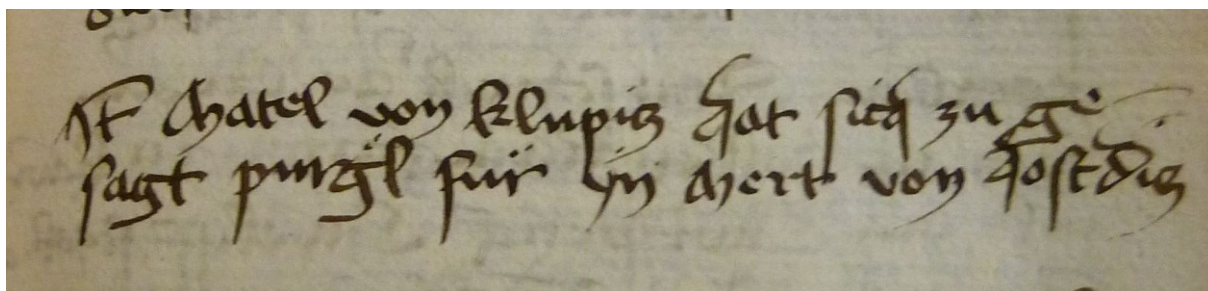 It Matel von klupig hat sich zu ge
sagt purgl für yn Mert von Hostdig